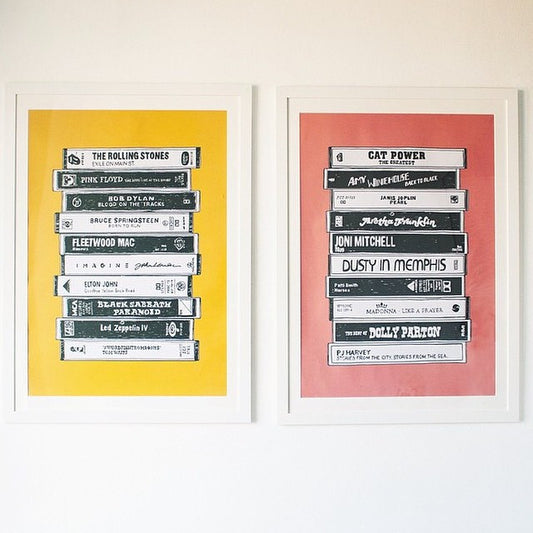 THE ROLLING STONES
EXILE ON MAIN ST.
PINK FLOYD THE DARK SIDE OF THE MOON
BOB DYLAN
BLOOD ON THE TRACKS
BRUCE SPRINGSTEEN
BORN TO RUN
FLEETWOOD MAC
Rumours
IMAGINE John Lennon
ELTON JOHN
Goodbye Yellow Brick Road
BLACK SABBATH
PARANOID
Led Zeppelin IV
"SWORDFISHTROMBONES"
TOM WAITS
CAT POWER
THE GREATEST
AMY WINEHOUSE BACK TO BLACK
JANIS JOPLIN
PEARL
Aretha Franklin
JONI MITCHELL
Blue
DUSTY IN MEMPHIS
Patti Smith
Horses
MADONNA - LIKE A PRAYER
THE BEST OF DOLLY PARTON
PJ HARVEY
STORIES FROM THE CITY, STORIES FROM THE SEA.